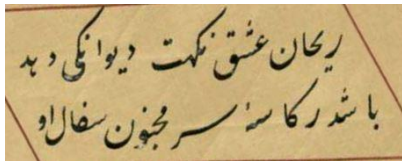 ریحان عشق نکهت دیوانکی دهد
باشد ز کاسهٔ سر مجنون سفال او